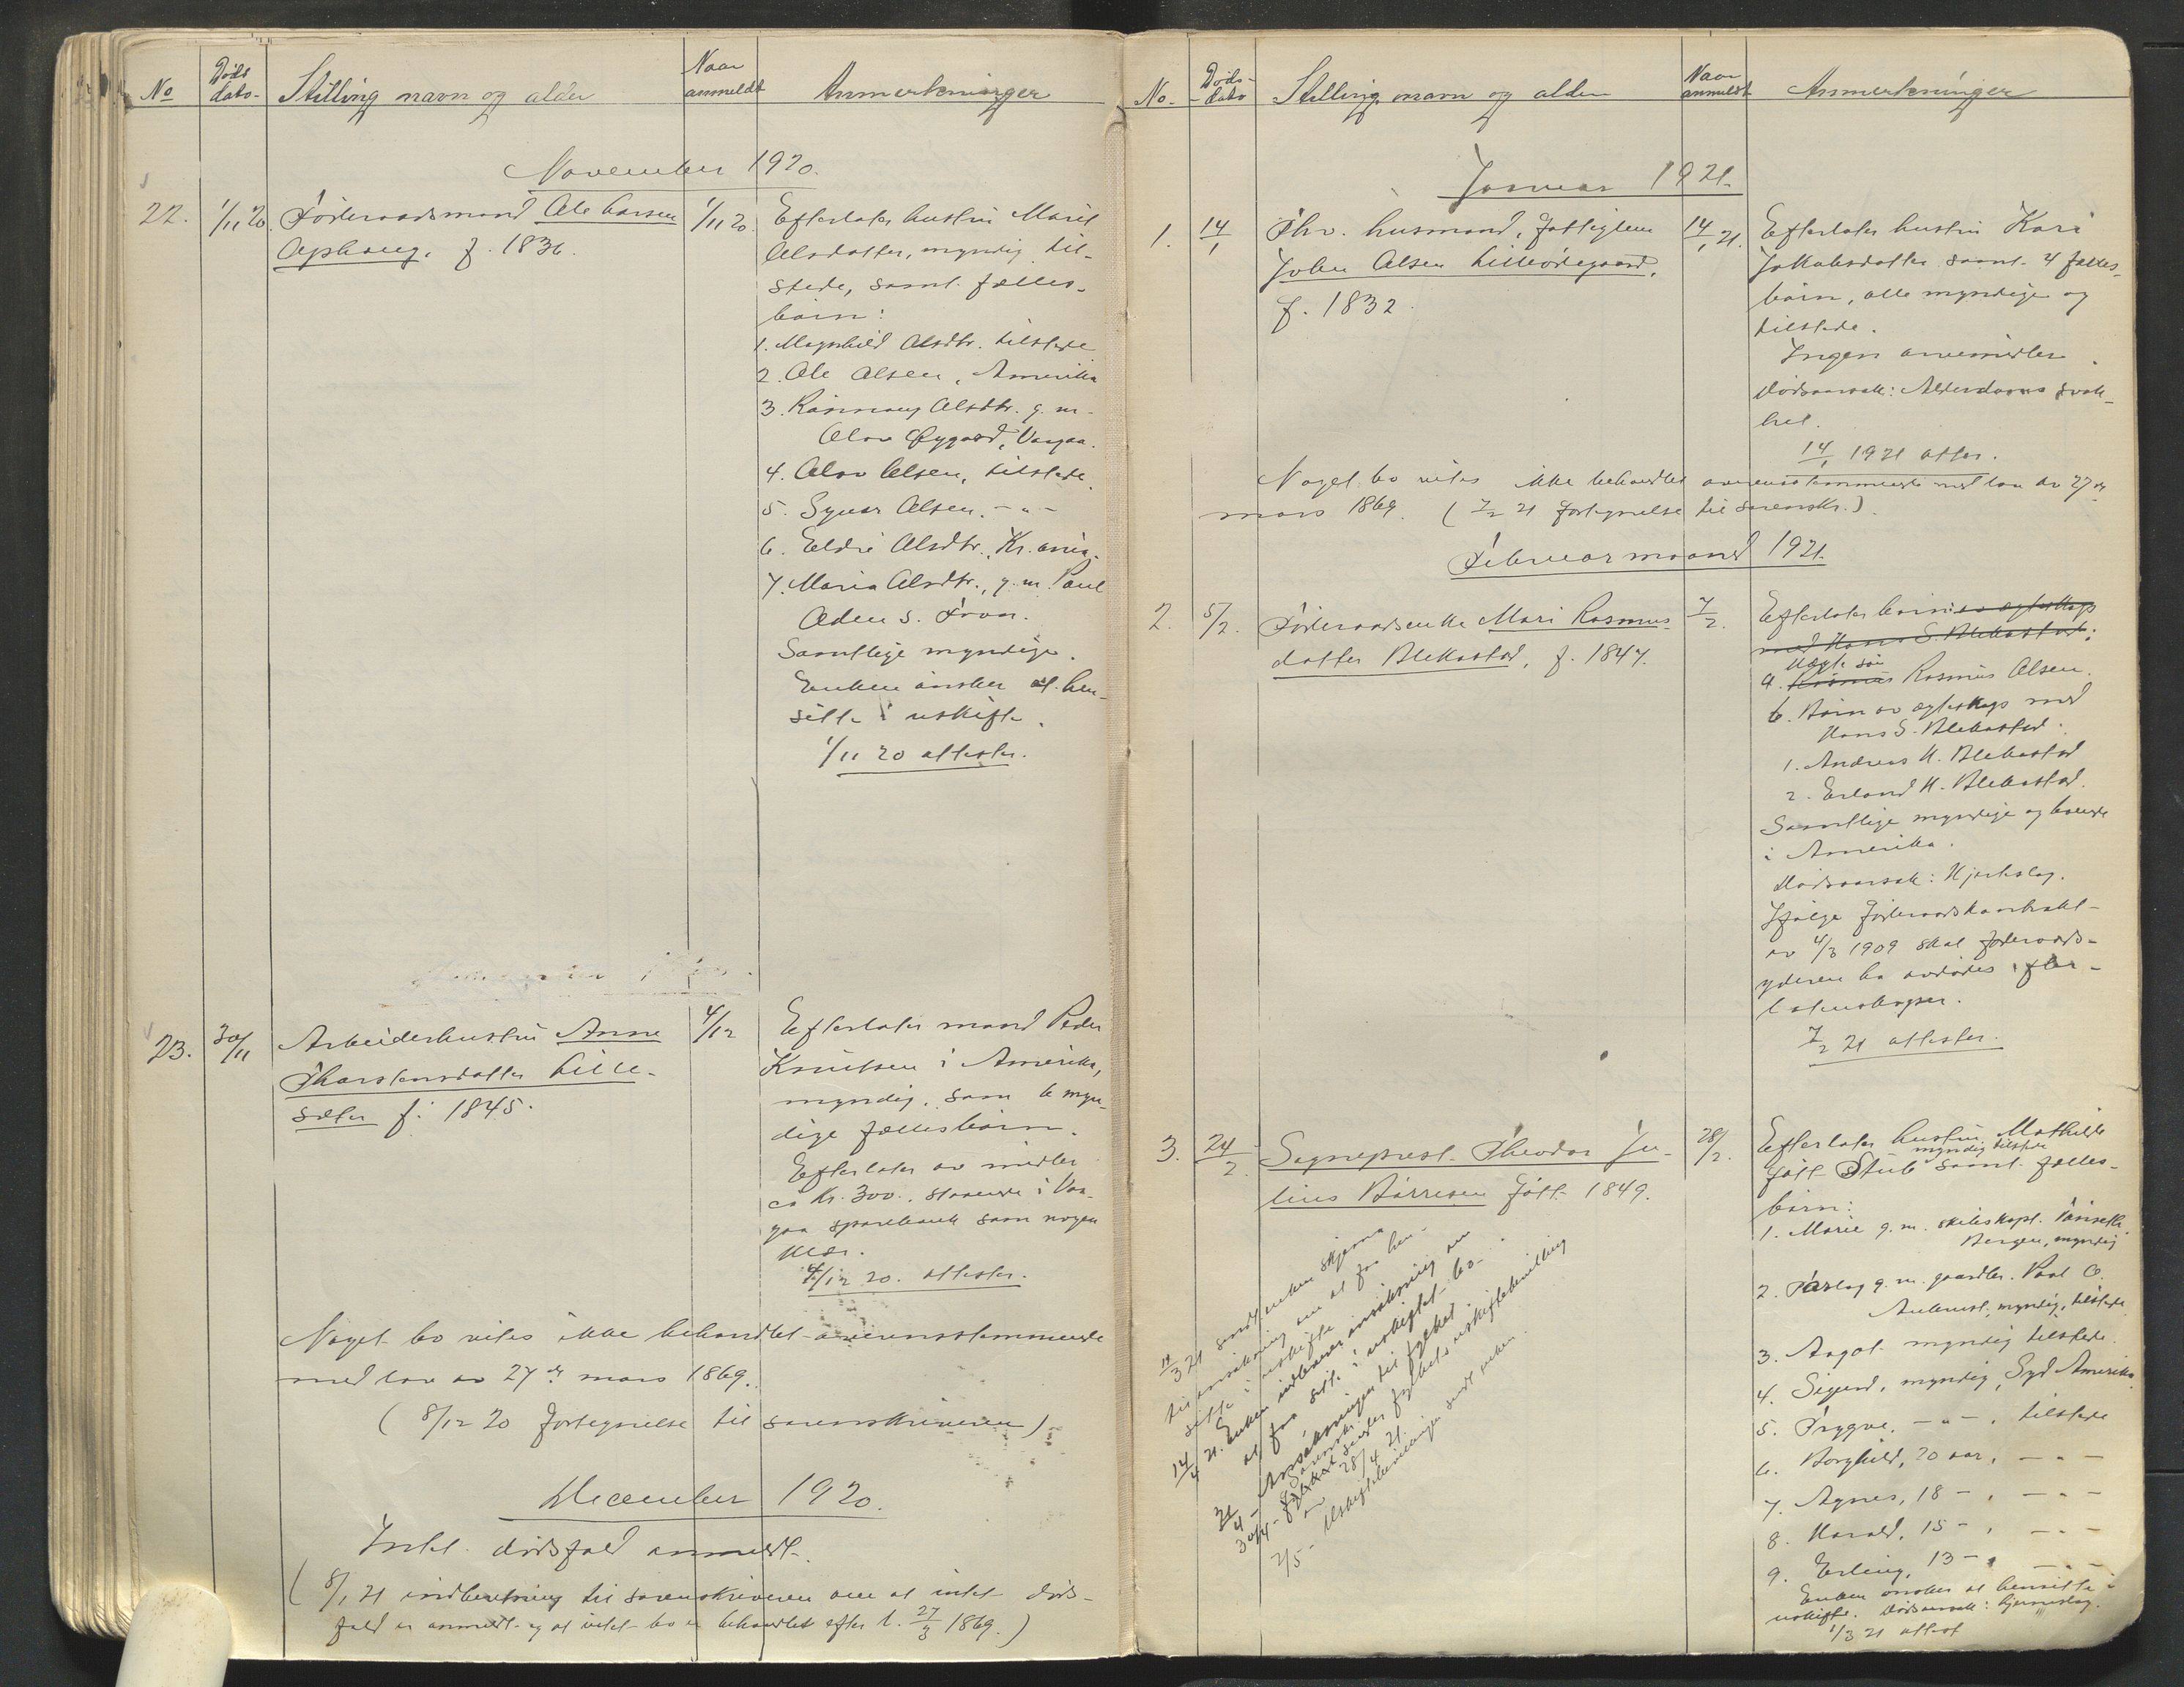 No
Døds
dato-
Stilling navn og alder
Naar
anmeldt
Anmerkninger
November 1920.
22.
1/11 20.
Føderaadsmand Ole Larsen
Ophaug, f. 1836.
1/11 20.
Efterlater hustru Marit
Olsdatter, myndig til-
stede, samt fælles-
børn:
1. Magnhild Olsdtr. tilstede
2. Ole Olsen, Amerika
3. Rønnaug Olsdtr. g. m.
Olav Øygard, Vaagaa.
4. Olav Olsen, tilstede.
5. Syver Olsen, - " -
6. Eldri Olsdtr., Kr.ania.
7. Maria Olsdtr., g. m. Paul
Øden S. Fron.
Samtlige myndige.
Enken ønsker at hen-
sitte i uskifte.
1/11 20 attester.
23.
30/11
Arbeiderhustru Anne
Thorstensdatter Lille-
sæter f. 1845.
4/12
Efterlater mand Peder
Knutsen i Amerika,
myndig, samt 6 myn-
dige fællesbørn.
Efterlater av midler
ca Kr. 300., staaende i Vaa-
gaa sparebank samt nogen
klær.
4/12 20. attester.
Noget bo vites ikke behandlet overensstemmende
med lov av 27de mars 1869.
(8/12 20 fortegnelse til sorenskriveren).
December 1920.
Intet dødsfald anmeldt.
(8/1 21 indberetning til sorenskriveren om at intet døds-
fald er anmeldt og at intet bo er behandlet efter l. 27/3 1869.)
No.
Døds-
-dato
Stilling, navn og alder
Naar
anmeldt
Anmerkninger
Januar 1921.
1.
14/1
Fhv. husmand, fattiglem
John Olsen Lilleødegaard,
f. 1832.
14/1 21.
Efterlater hustru Kari
Jakobsdatter samt 4 fælles-
børn, alle myndige og
tilstede.
Ingen arvemidler.
Dødsaarsak: Alderdoms svak-
het.
14/1 1921 attes.
Noget bo vites ikke behandlet overensstemmende med lov av 27de
mars 1869. (7/2 21 fortegnelse til sorenskr.).
Februar maaned 1921.
2.
5/2.
Føderaadsenke Mari Rasmus-
datter Blekastad, f. 1847.
7/2.
Efterlater børn av egteskap
med Hans S. Blekastad:
Uegte søn
a. Rasmus Rasmus Olsen.
b. Børn av egteskap med
Hans S. Blekastad:
1. Andreas H. Blekastad
2. Erland H. Blekastad.
Samtlige myndige og boende
i Amerika.
Dødsaarsak: Hjerteslag.
Ifølge føderaadskontrakt
av 4/3 1909 skal føderaads-
yderen ha avdødes efter-
latenskaper.
7/2 21 attester.
3.
24/2
Sogneprest Theodor Ju-
lius Børresen født 1849.
28/2.
Efterlater hustru Mathilde
myndig tilstede
født Stub samt fælles-
børn:
1. Marie g. m. skibskapt.
Bergen, myndig
2. Aslaug g. m. gaardbr. Paul O.
myndig, tilstede
3. Aagot myndig tilstede.
4. Sigurd, myndig, Syd Amerika.
5. Trygve, - " - , tilstede
6. Borghild, 20 aar, - " -
7. Agnes, 18 - , - " -
8. Harald, 15 - , - " -
9. Erling, 13 - , - " -
Enken ønsker at hensitte i
uskifte. Dødsaarsak: hjerneslag.
1/3 21 attest
11/3 21 sendt enken skjema
til ansøkning om at faa hen-
sitte i uskifte.
14/4 21. Enken indleverer ansøkning om
at faa sitte i uskiftet bo.
21/4 - Ansøkningen til fylket
30/4 - Sorenskr. sender fylkets uskiftebevilling
av 28/4 21.
2/5 - Uskiftebevillingen sendt enken.